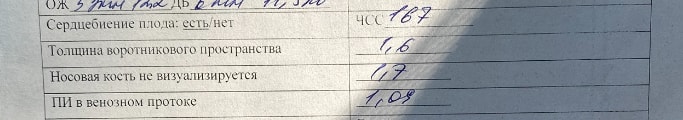 ОЖ
Сердцебиение плода: есть/нет ЧСС 167
Толщина воротникового пространства 1,6
Носовая кость не визуализируется 1,7
ПИ в венозном протоке 1,09